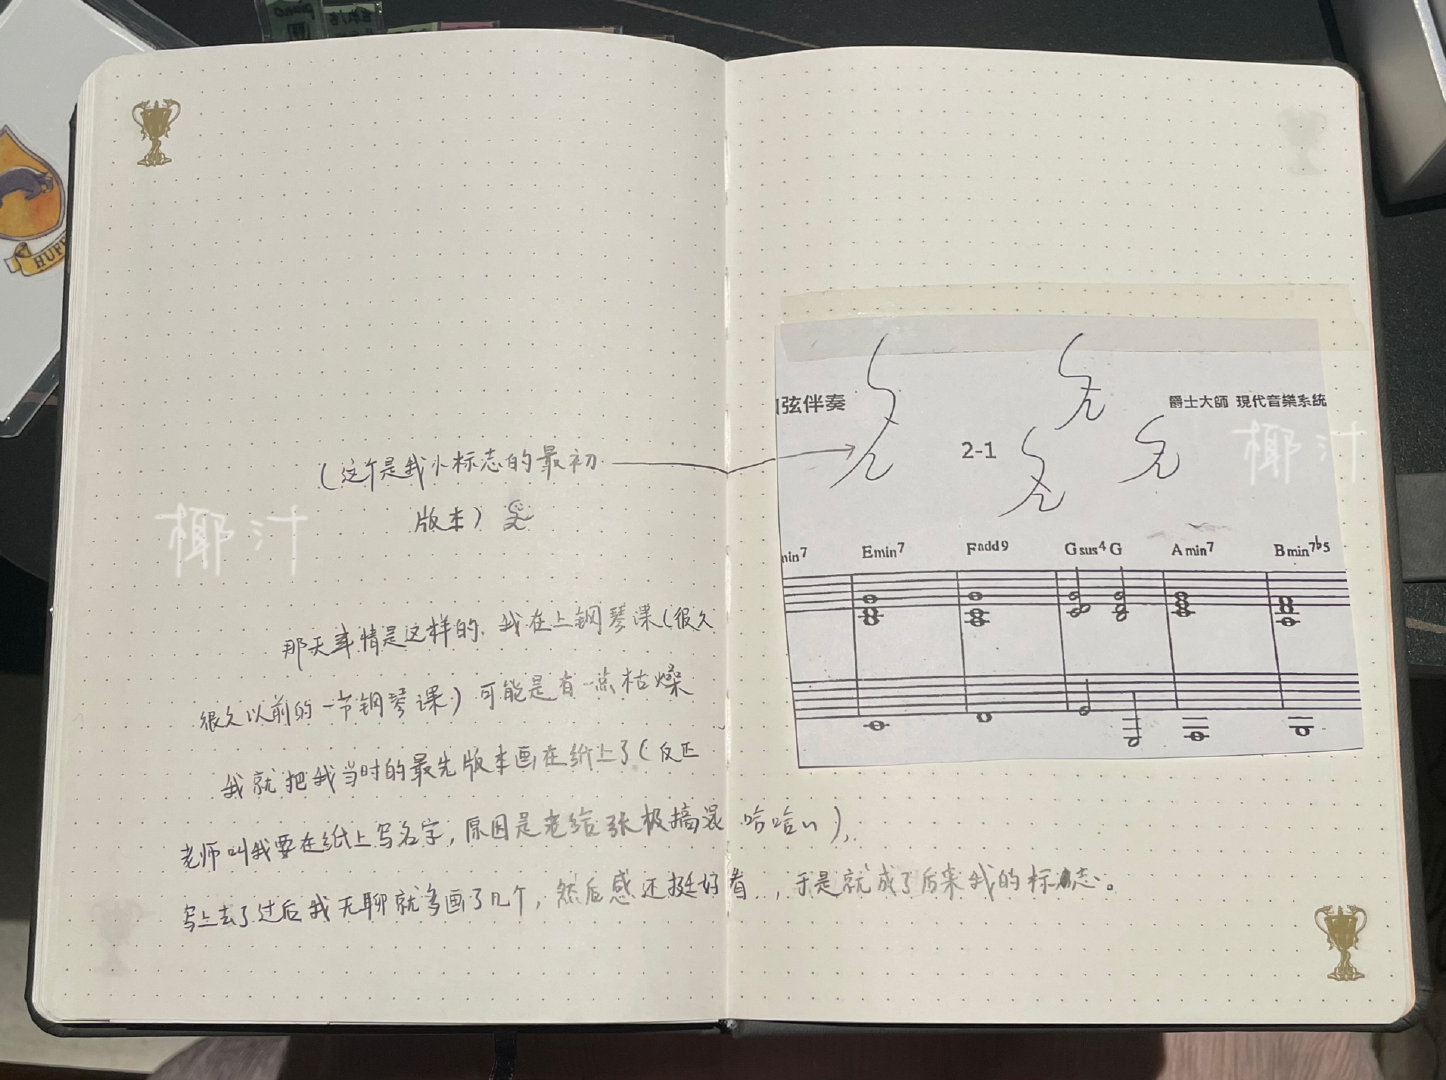 HUFF
(这个是我小标志的最初
版本)
椰汁
那天事情是这样的，我在上钢琴课(很久
很久以前的一节钢琴课)可能是有一点枯燥
我就把我当时的最先版本画在纸上了(反正
老师叫我要在纸上写名字，原因是老给张极搞混 哈哈)，
写上去了过后我无聊就多画了几个，然后感还挺好看..，于是就成了后来我的标志。
弦伴奏
爵士大師 現代音樂系統
2-1
椰汁
min7 Emin7 Fadd9 Gsus4 G Amin7 Bmin7b5